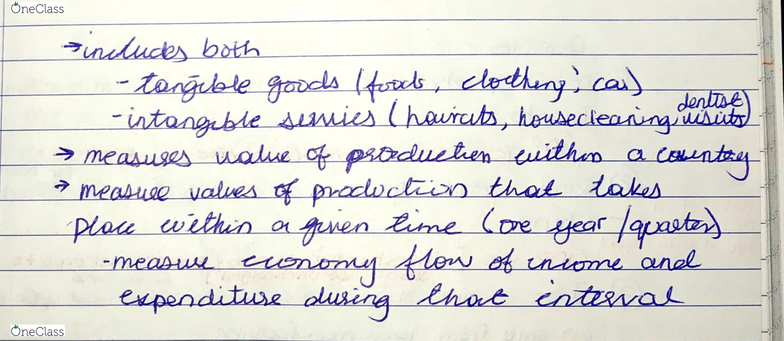 OneClass
→ includes both
- tangible goods (foods, clothing, car)
- intangible services (haircuts, housecleaning, dentist visits)
→ measures value of production within a country
→ measure values of production that takes
place within a given time (one year / quarter)
- measure economy flow of income and
expenditure during that interval
OneClass